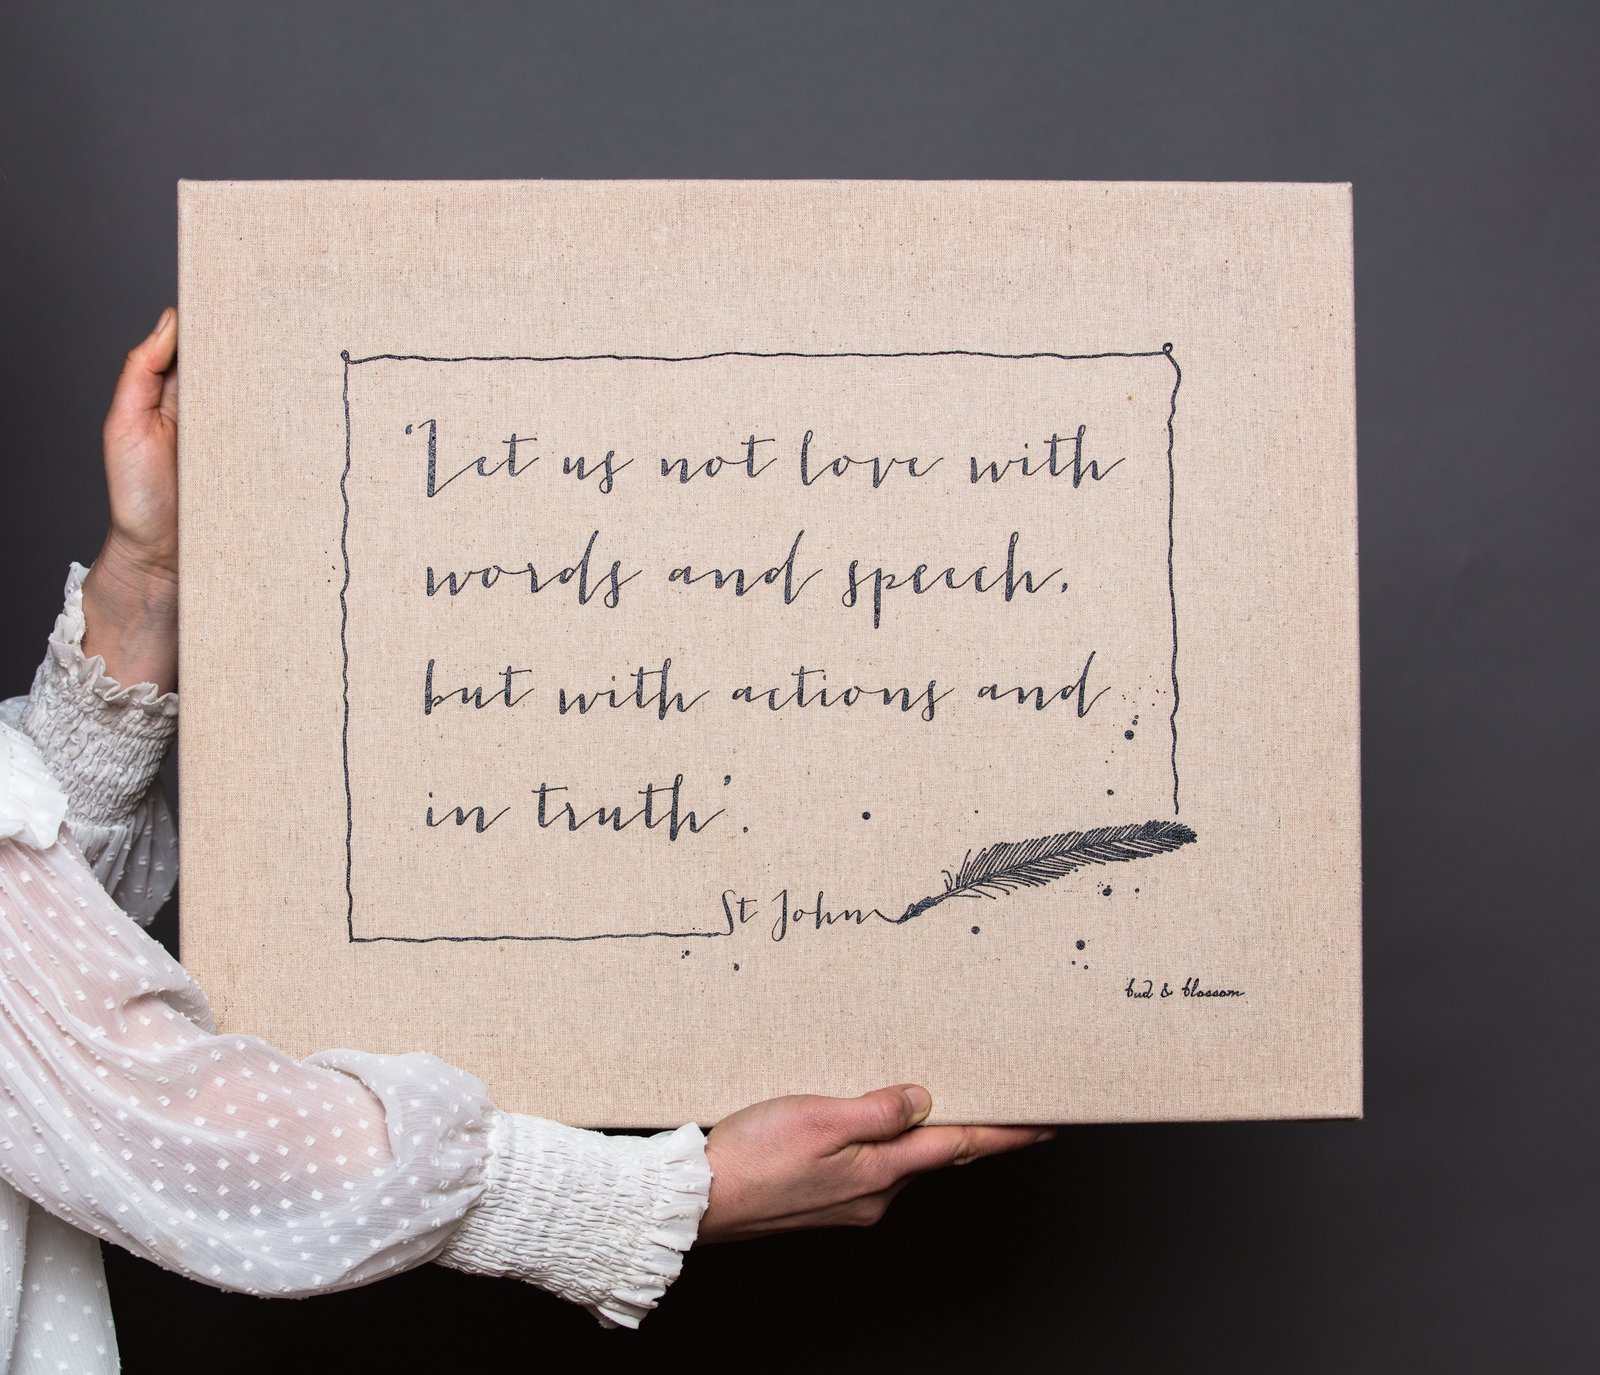 'Let us not love with
words and speech,
but with actions and
in truth'.
St John
bud & blossom